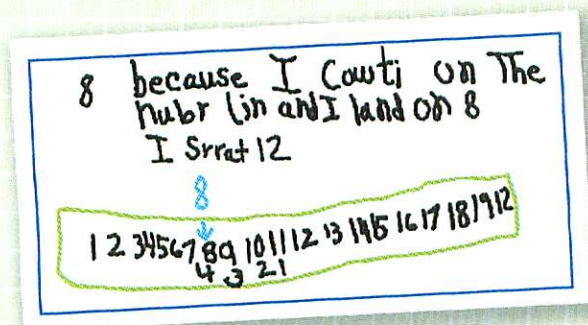 8 because I Cowti on The
nubr lin and I land on 8
I Srrat 12
8
1 2 3 4 5 6 7 8 9 10 11 12 13 14 15 16 17 18 19 12
4 3 2 1